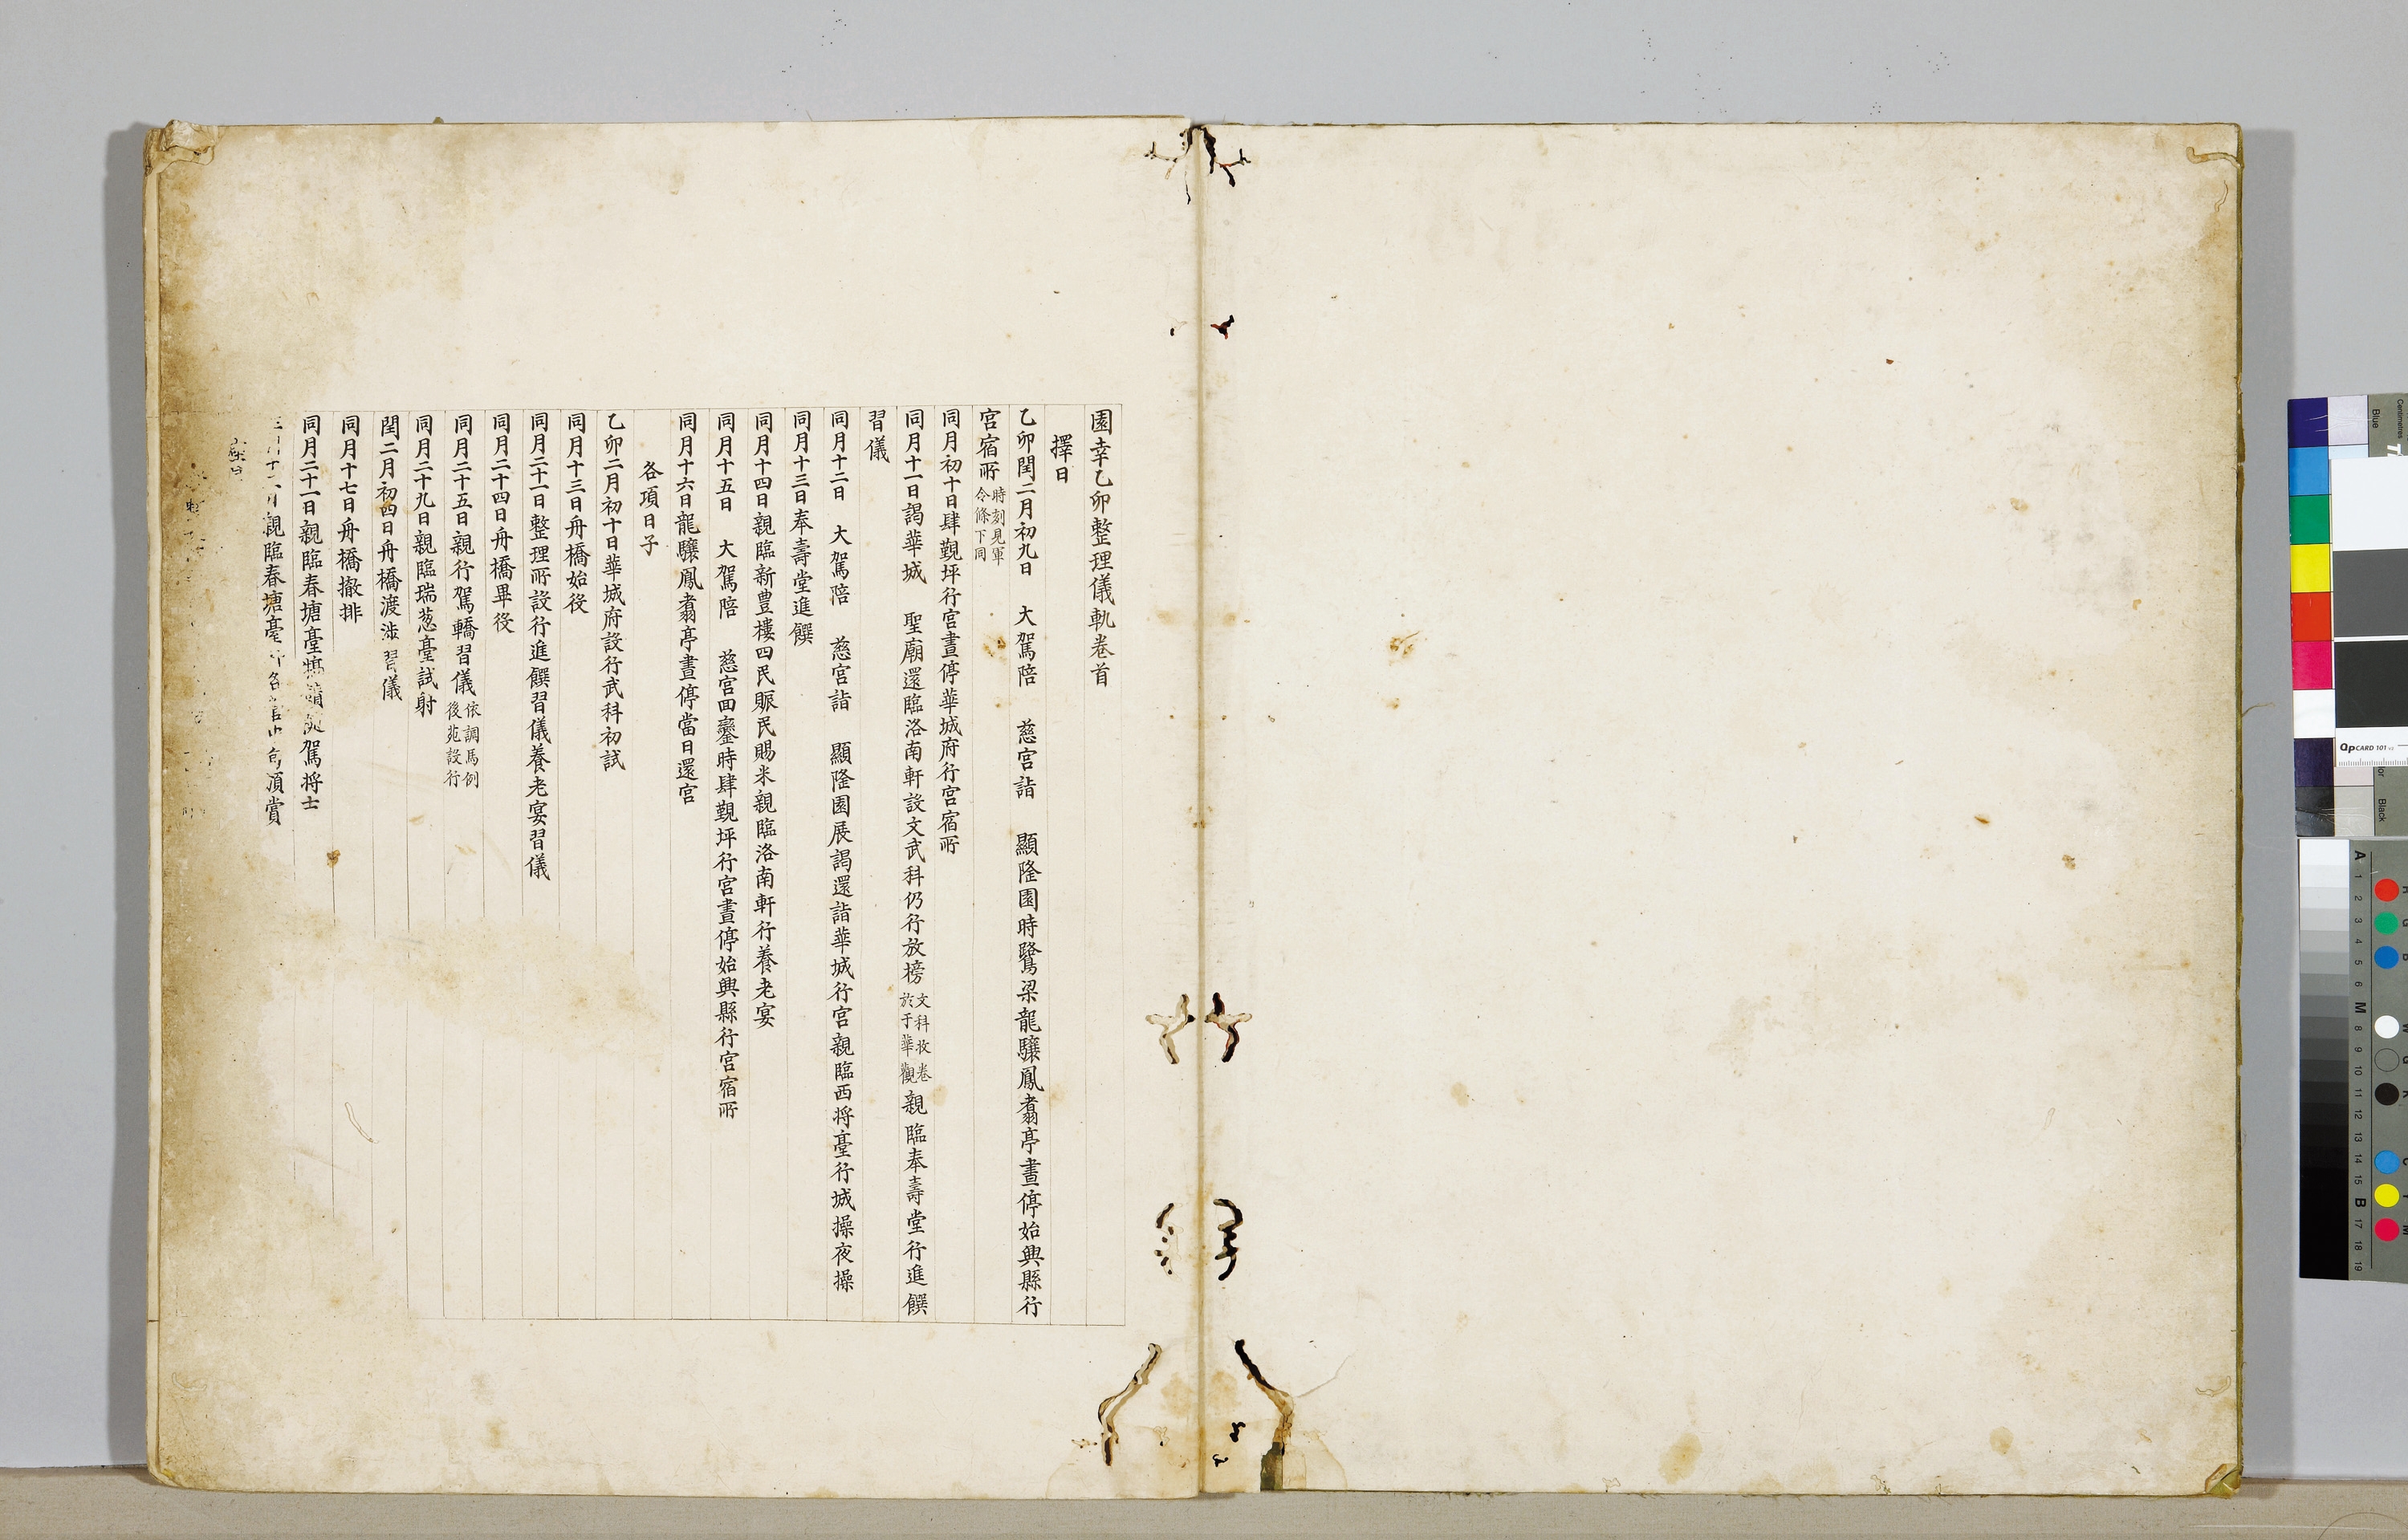 園幸乙卯整理儀軌卷首
擇日
乙卯閏二月初九日 大駕陪 慈宮詣 顯隆園時鷺梁龍驤鳳翥亭晝停始興縣行
宮宿所時刻見軍令條下同
同月初十日肆覲坪行宮晝停華城府行宮宿所
同月十一日謁華城 聖廟還臨洛南軒設文武科仍行放榜文科收卷於于華觀親臨奉壽堂行進饌
習儀
同月十二日 大駕陪 慈宮詣 顯隆園展謁還詣華城行宮親臨西將臺行城操夜操
同月十三日奉壽堂進饌
同月十四日親臨新豊樓四民賑民賜米親臨洛南軒行養老宴
同月十五日 大駕陪 慈宮回鑾時肆覲坪行宮晝停始興縣行宮宿所
同月十六日龍驤鳳翥亭晝停當日還宮
各項日子
乙卯二月初十日華城府設行武科初試
同月十三日舟橋始役
同月二十一日整理所設行進饌習儀養老宴習儀
同月二十四日舟橋畢役
同月二十五日親行駕轎習儀依調馬例後苑設行
同月二十九日親臨瑞葱臺試射
閏二月初四日舟橋渡涉習儀
同月十七日舟橋撤排
同月二十一日親臨春塘臺犒饋 駕將士
親臨春塘臺 各 頒賞
Centimetres
Blue
Black
QPCARD 101
A 1 2 3 4 5 6 M 8 9 10 11 12 13 14 15 B 17 18 19